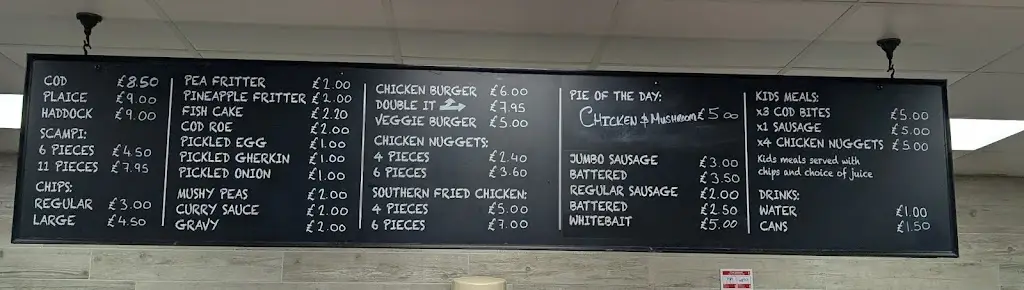 COD £8.50
PLAICE £9.00
HADDOCK £9.00
SCAMPI:
6 PIECES £4.50
11 PIECES £7.95
CHIPS:
REGULAR £3.00
LARGE £4.50
PEA FRITTER £2.00
PINEAPPLE FRITTER £2.00
FISH CAKE £2.20
COD ROE £2.00
PICKLED EGG £1.00
PICKLED GHERKIN £1.00
PICKLED ONION £1.00
MUSHY PEAS £2.00
CURRY SAUCE £2.00
GRAVY £2.00
CHICKEN BURGER £6.00
DOUBLE IT £7.95
VEGGIE BURGER £5.00
CHICKEN NUGGETS:
4 PIECES £2.40
6 PIECES £3.60
SOUTHERN FRIED CHICKEN:
4 PIECES £5.00
6 PIECES £7.00
PIE OF THE DAY:
CHICKEN & MUSHROOM £5.00
JUMBO SAUSAGE £3.00
BATTERED £3.50
REGULAR SAUSAGE £2.00
BATTERED £2.50
WHITEBAIT £5.00
KIDS MEALS:
x3 COD BITES £5.00
x1 SAUSAGE £5.00
x4 CHICKEN NUGGETS £5.00
Kids meals served with
chips and choice of juice
DRINKS:
WATER £1.00
CANS £1.50